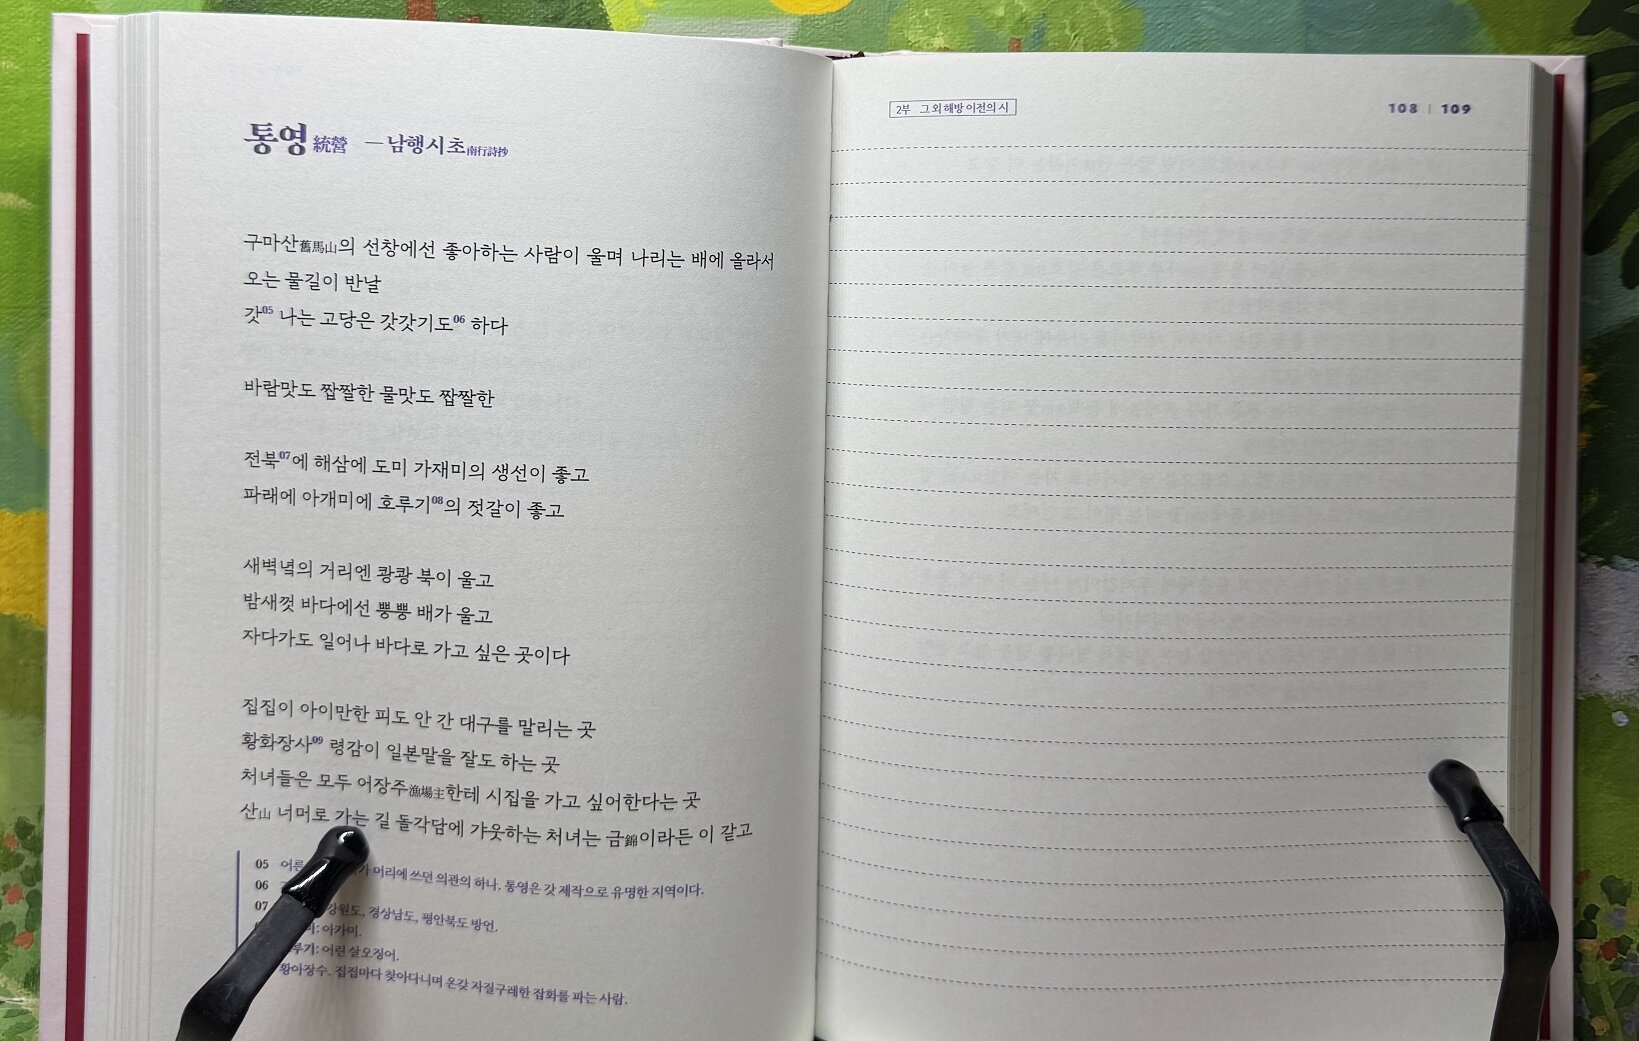 통영統營 ―남행시초南行詩抄
구마산舊馬山의 선창에선 좋아하는 사람이 울며 나리는 배에 올라서
오는 물길이 반날
갓05 나는 고당은 갓갓기도06 하다
바람맛도 짭짤한 물맛도 짭짤한
전북07에 해삼에 도미 가재미의 생선이 좋고
파래에 아개미에 호루기08의 젓갈이 좋고
새벽녘의 거리엔 쾅쾅 북이 울고
밤새껏 바다에선 뿡뿡 배가 울고
자다가도 일어나 바다로 가고 싶은 곳이다
집집이 아이만한 피도 안 간 대구를 말리는 곳
황화장사09 령감이 일본말을 잘도 하는 곳
처녀들은 모두 어장주漁場主한테 시집을 가고 싶어한다는 곳
산山 너머로 가는 길 돌각담에 갸웃하는 처녀는 금錦이라든 이 같고
05 머리에 쓰던 의관의 하나. 통영은 갓 제작으로 유명한 지역이다.
06
07 강원도, 경상남도, 평안북도 방언.
아가미.
루기: 어린 살오징어.
황아장수. 집집마다 찾아다니며 온갖 자질구레한 잡화를 파는 사람.
2부 그 외 해방 이전의 시
108 | 109